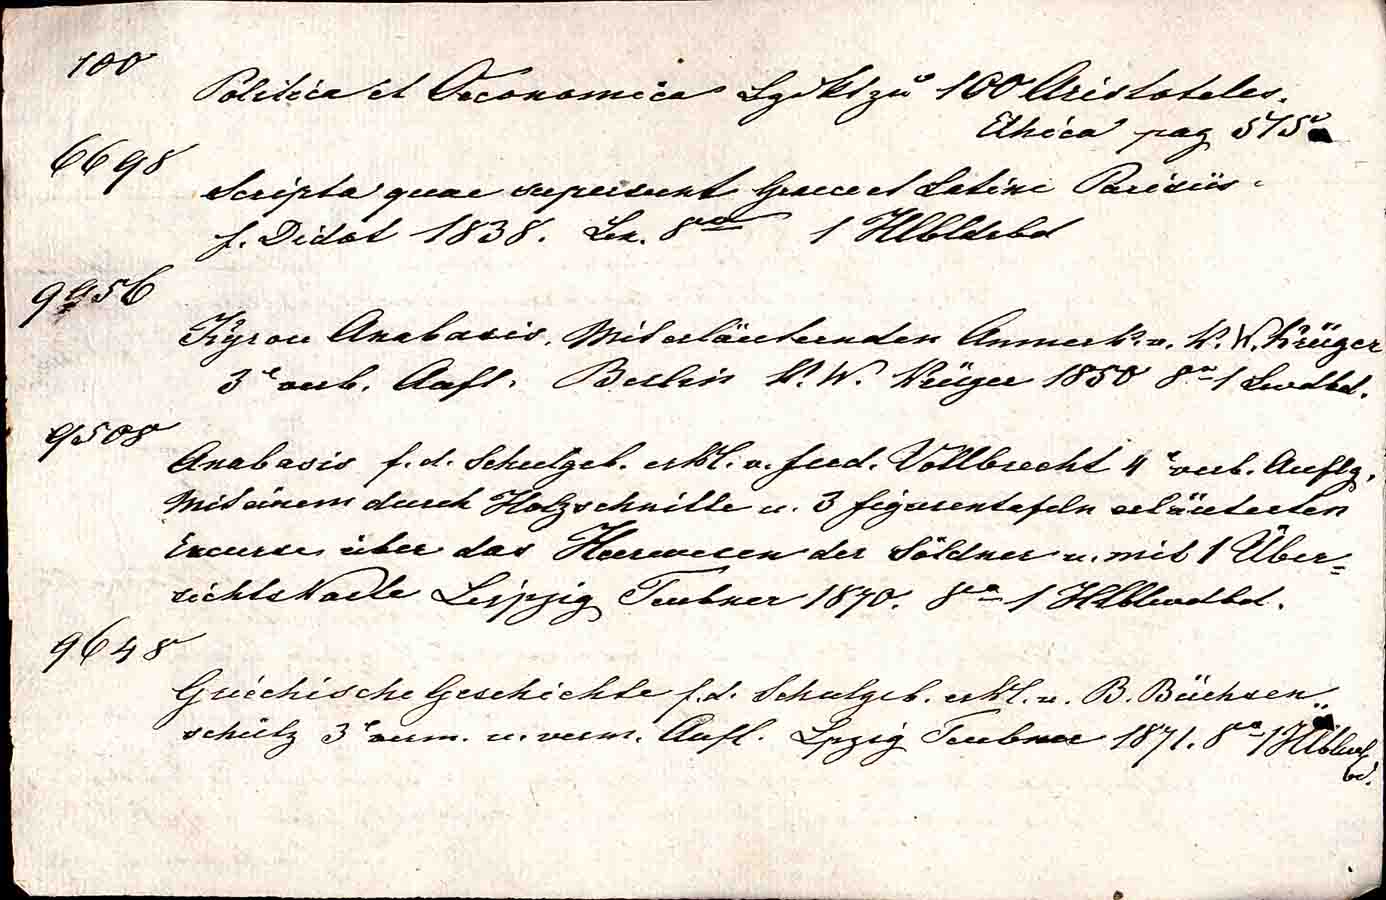 100
Politica et Oeconomica Xenokt zu 100 Aristoteles.
Ethica pag 575
6698
Scripta quae supersunt Graece et Latine Parisiis.
f. Didot 1838. Lex. 8vo 1 Hlbldrbd
9956
Kyrou Anabasis. Mit erläuternden Anmerk. v. K. W. Krüger
3e verb. Aufl. Berlin K. W. Krüger 1850 8vo 1 Lwdbd.
9508
Anabasis f. d. Schulgeb. erkl. v. Ferd. Vollbrecht 4e verb. Auflg.
Mit einem durch Holzschnitte u. 3 Figurentafeln erläuterten
Excurse über das Heerwesen der Söldner u. mit 1 Über=
sichtskarte Leipzig Teubner 1870. 8vo 1 Hlblwdbd.
9648
Griechische Geschichte f. d. Schulgeb. erkl. v. B. Büchsen
schütz 3e verm. u. verm. Aufl. Lpzig Teubner 1871. 8vo 1 Hlblwd
bd.